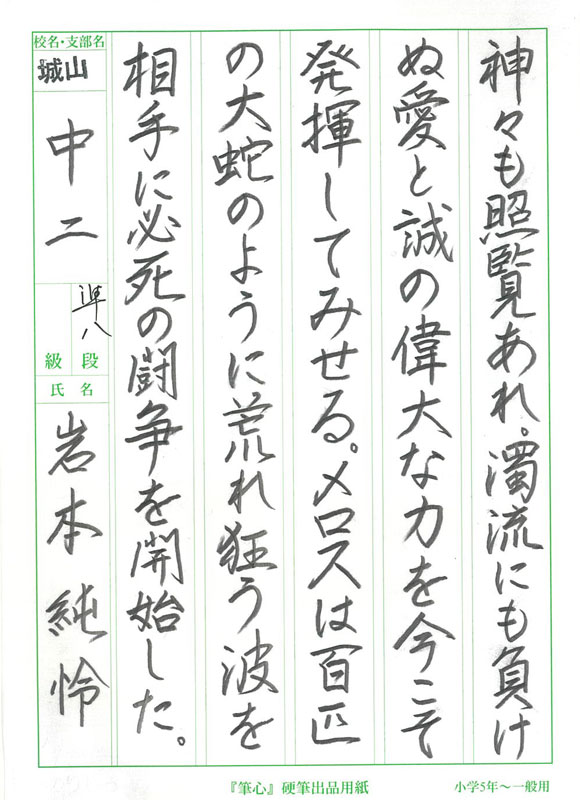 神々も照覧あれ。濁流にも負け
ぬ愛と誠の偉大な力を今こそ
発揮してみせる。メロスは百匹
の大蛇のように荒れ狂う波を
相手に必死の闘争を開始した。
校名・支部名
城山
中二
準八
段
級
氏名
岩本純怜
『筆心』硬筆出品用紙
小学5年〜一般用